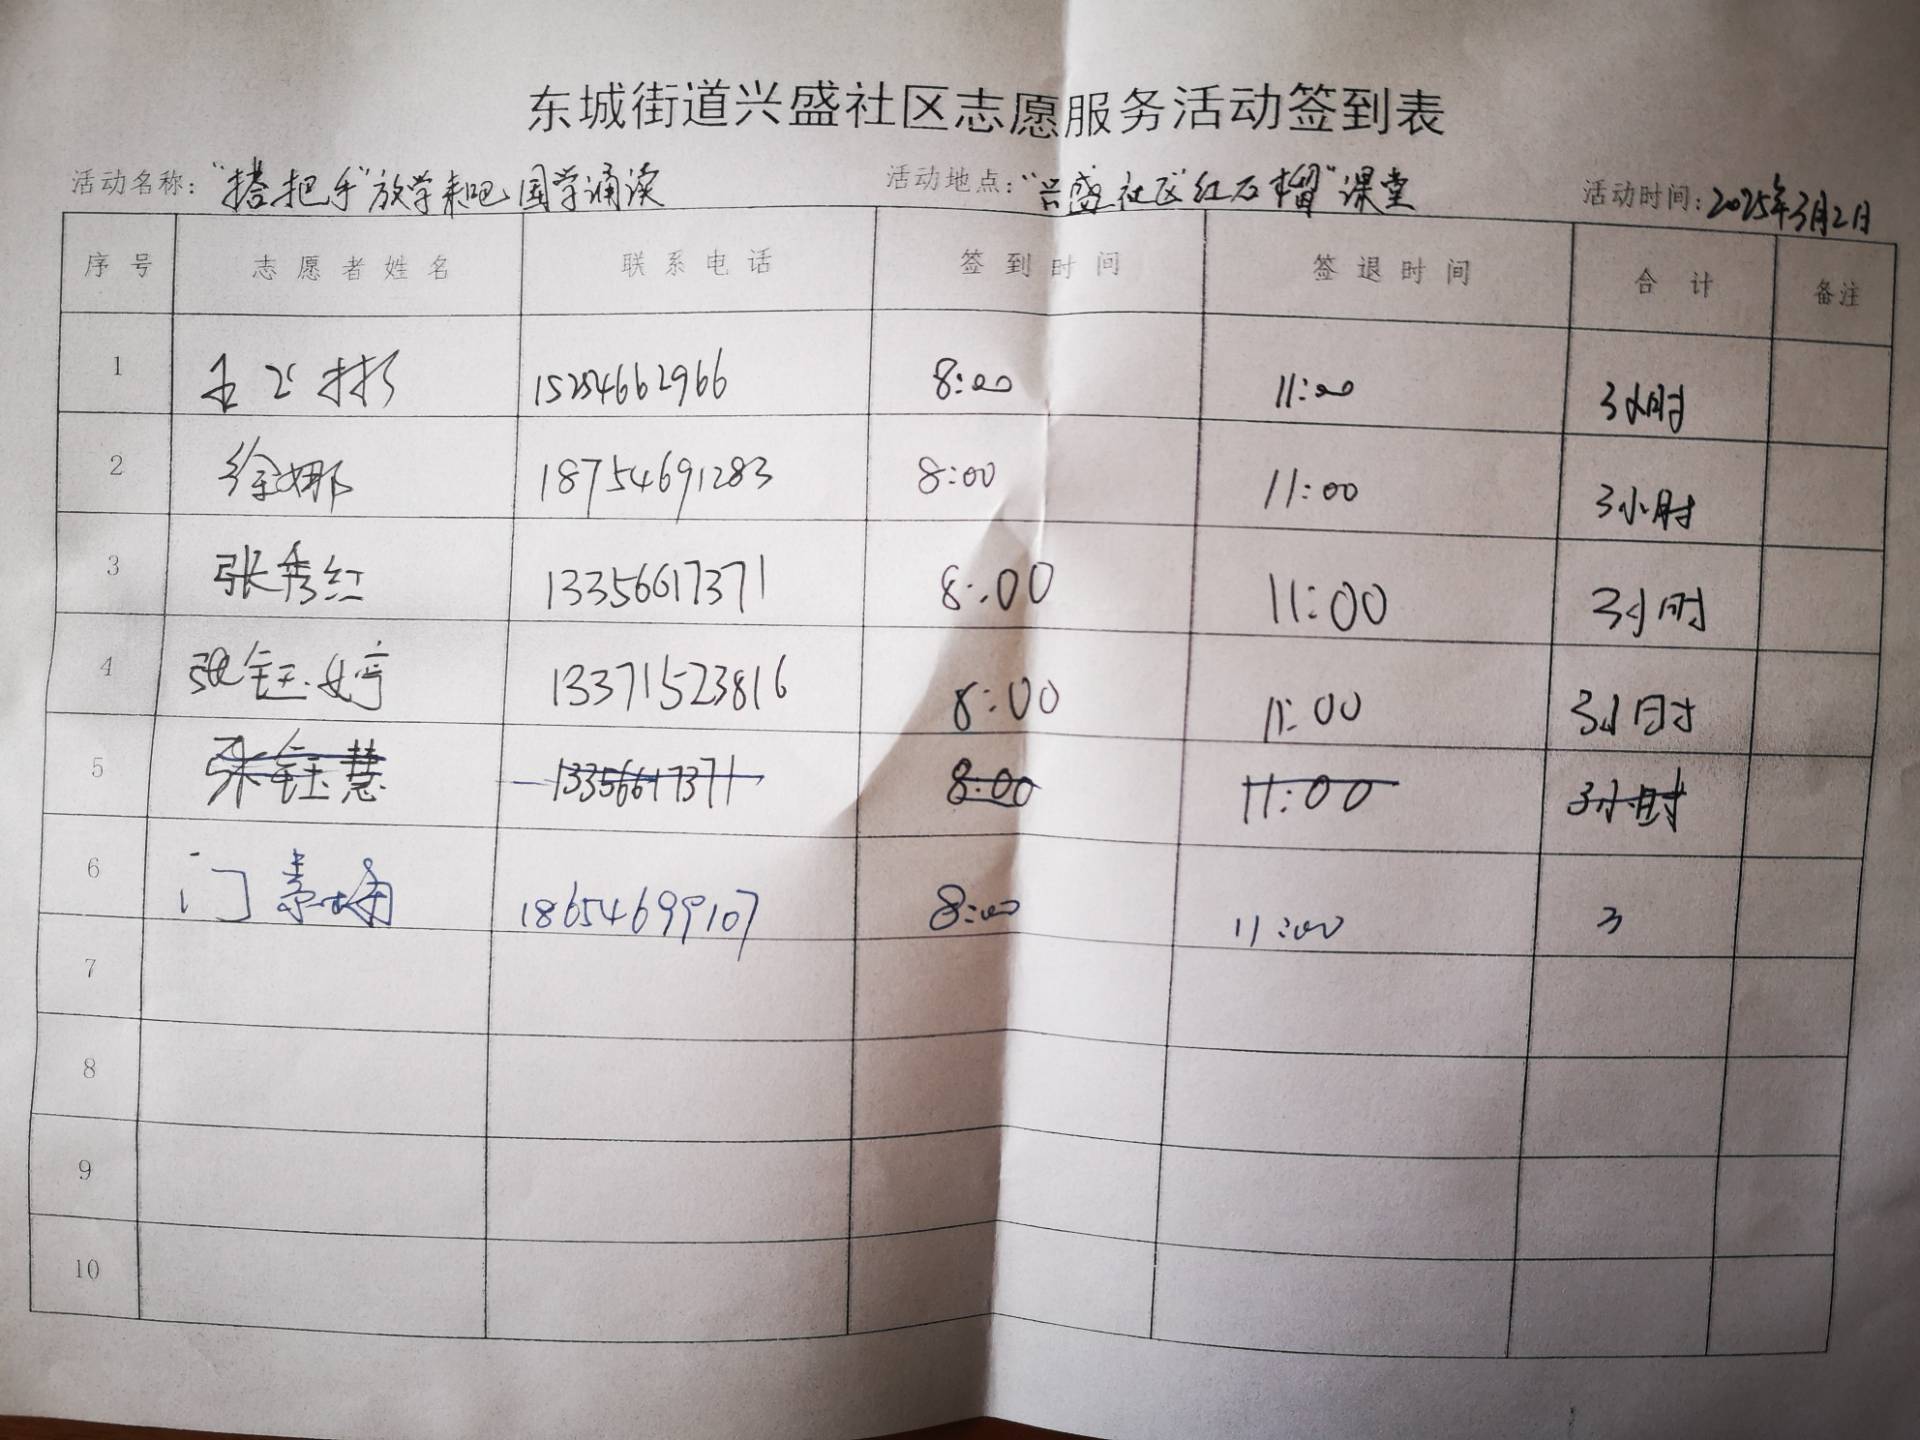 东城街道兴盛社区志愿服务活动签到表
活动名称:"搭把手"放学来吧国学诵读 活动地点:"兴盛社区"红石榴"课堂 活动时间:2025年3月2日
序号 志愿者姓名 联系电话 签到时间 签退时间 合计 备注
1 15254662966 8:00 11:00 3小时
2 徐娜 18754691283 8:00 11:00 3小时
3 张秀红 13356617371 8:00 11:00 3小时
4 张钰婷 13371523816 8:00 11:00 3小时
5 张钰慧 13356617371 8:00 11:00 3小时
6 门素梅 18654699107 8:00 11:00 3
7
8
9
10